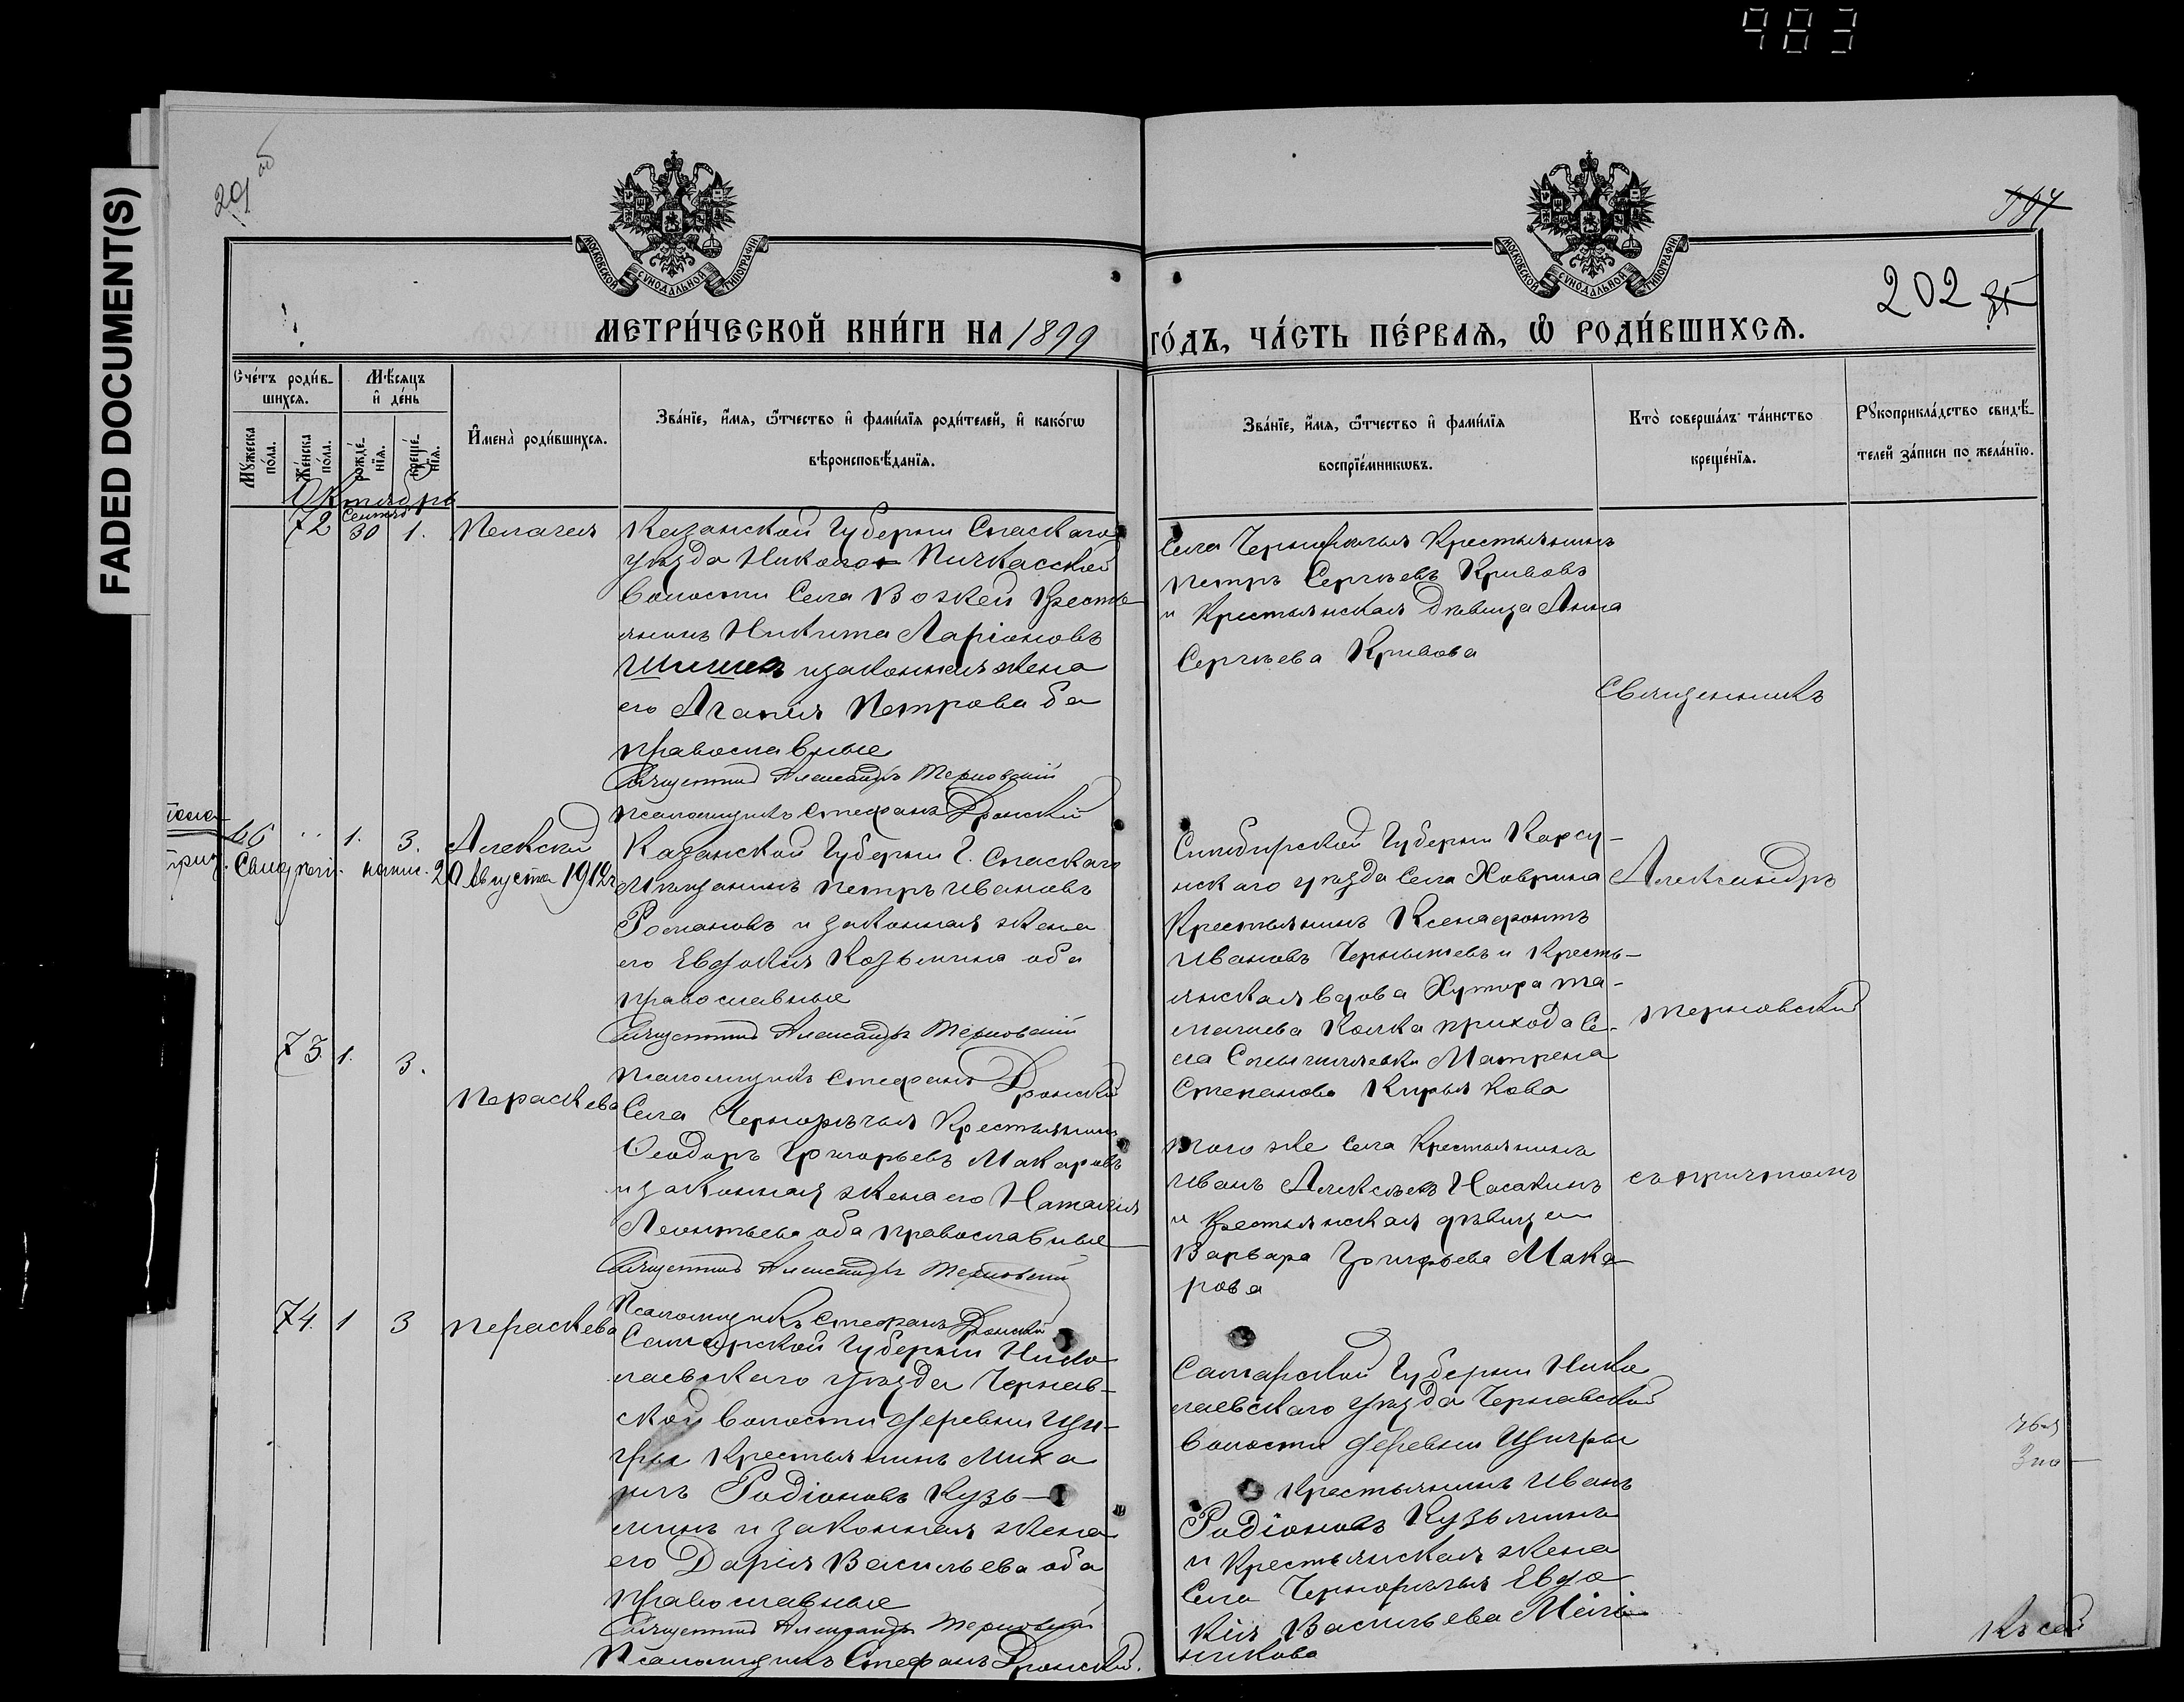 483
FADED DOCUMENT(S)
29 об
МОСКОВСКОЙ СУНОДАЛЬНОЙ ТИПОГРАФІИ
МОСКОВСКОЙ СУНОДАЛЬНОЙ ТИПОГРАФІИ
202
МЕТРИ́ЧЕСКОЙ КНИ́ГИ НА 1899 ГО́ДЪ, ЧА́СТЬ ПЕ́РВАѦ, Ѡ҆ РОДИ́ВШИХСѦ.
Сче́тъ роди́в-
шихсѧ.
Мꙋ́жеска по́ла.
Же́нска по́ла.
Мѣ́сѧцъ
и҆ де́нь
рожде́-
нїѧ.
креще́-
нїѧ.
И҆мена̀ роди́вшихсѧ.
Зва́нїе, и҆́мѧ, ѻ҆́тчество и҆ фами́лїѧ роди́телей, и҆ како́гѡ
вѣроисповѣ́данїѧ.
Зва́нїе, и҆́мѧ, ѻ҆́тчество и҆ фами́лїѧ
воспрїе́мникѡвъ.
Кто̀ соверша́лъ та́инство
креще́нїѧ.
Рꙋкоприкла́дство свидѣ́-
телей за́писи по жела́нїю.
Октябрь
72 Сентяб 30 1. Пелагея
Казанской Губерніи Спаскаго
уѣзда Николо- Пичкасской
волости Села Возжей Кресть
янинъ Никита Ларіоновъ
Шишовъ и законная жена
его Агапія Петрова ба
православные
Священникъ Александръ Терновскій
Псаломщикъ Стефанъ Дронскій
Села Чернорѣчья Крестьянинъ
Петръ Сергѣевъ Кривовъ
и Крестьянская дѣвица Анна
Сергѣева Кривова
Священникъ
66 1. 3. Алексѣй
Свидѣт. напис. 20 Августа 1912г
Казанской Губерніи Г. Спаскаго
Мѣщанинъ Петръ Ивановъ
Романовъ и законная жена
его Евдокія Козьмина оба
православные
Священникъ Александръ Терновскій
Псаломщикъ Стефанъ Дронскій
Симбирской Губерніи Карсу-
нскаго уѣзда Села Ховрина
Крестьянинъ Ксенофонтъ
Ивановъ Чернышевъ и Кресть-
янская вдова Хутора та-
малиева Колка прихода Се-
ла Степановки Матрена
Степанова Кирьякова
Александръ
Терновскій
73 1. 3. Параскева
Села Чернорѣчья Крестьянинъ
Ѳеодоръ Григорьевъ Макаровъ
и законная жена его Наталія
Леонтьева оба православные
Священникъ Александръ Терновскій
Псаломщикъ Стефанъ Дронскій
Того же Села Крестьянинъ
Иванъ Алексѣевъ Насакинъ
и Крестьянская дѣвица
Варвара Григорьева Мака
рова
съ причтомъ
74. 1 3 Параскева
Самарской Губерніи Нико
лаевскаго уѣзда Чернав-
ской волости деревни Щи-
гры Крестьянинъ Миха
илъ Родіоновъ Кузь-
минъ и законная жена
его Дарія Васильева оба
православные
Священникъ Александръ Терновскій
Псаломщикъ Стефанъ Дронскій.
Самарской Губерніи Нико
лаевскаго уѣзда Чернавской
волости деревни Щигры
Крестьянинъ Иванъ
Родіоновъ Кузьминъ
и Крестьянская жена
Села Чернорѣчья Евдо
кія Васильева Мель
никова